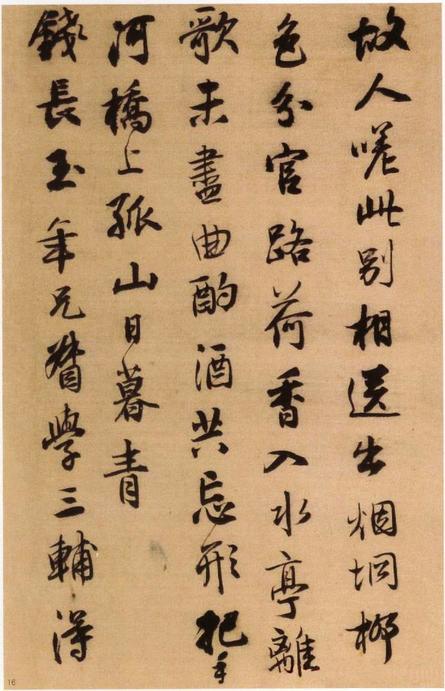 故人嗟此別相送出烟坰栁
色分官路荷香入水亭離
歌未盡曲酌酒共忘形把手
河橋上孤山日暮青
錢長玉年兄督學三輔得
16